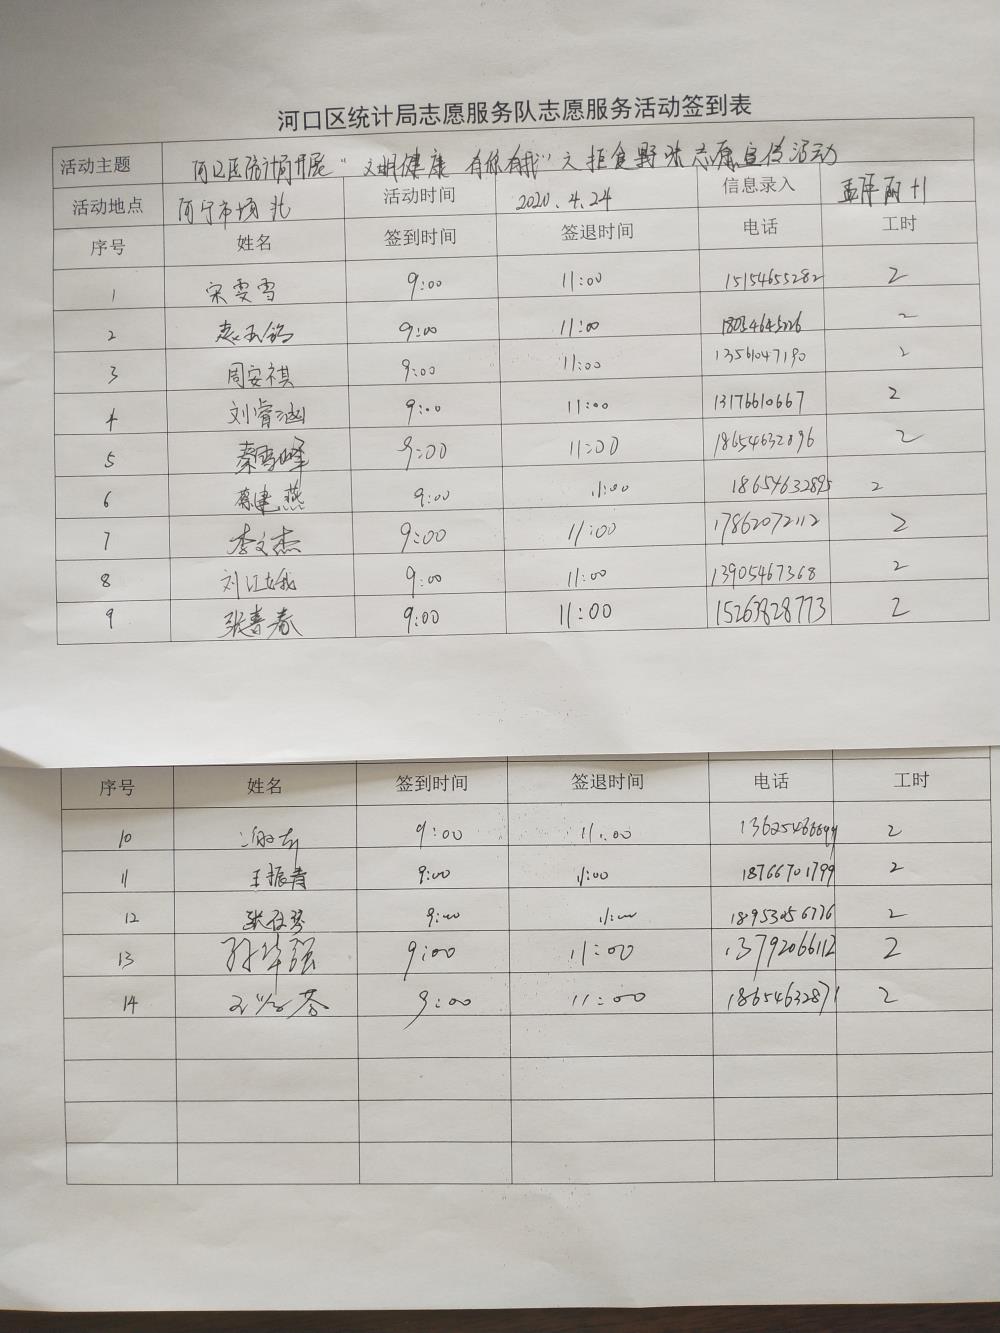 河口区统计局志愿服务队志愿服务活动签到表
活动主题 河口区统计局开展“文明健康 有你有我”之拒食野味志愿宣传活动
活动地点 河宁市场北 活动时间 2020.4.24 信息录入 孟萍丽+1
序号 姓名 签到时间 签退时间 电话 工时
1 宋雯雪 9:00 11:00 15154655282 2
2 9:00 11:00 2
3 周安祺 9:00 11:00 13561047190 2
4 刘睿涵 9:00 11:00 13176610667 2
5 秦雪峰 9:00 11:00 18654632896 2
6 蔡建燕 9:00 11:00 18654632895 2
7 李文杰 9:00 11:00 17862072112 2
8 刘江娥 9:00 11:00 13905467368 2
9 张春春 9:00 11:00 15263828773 2
序号 姓名 签到时间 签退时间 电话 工时
10 9:00 11:00 2
11 王振青 9:00 11:00 18766701799 2
12 9:00 11:00 18953056776 2
13 孙华强 9:00 11:00 13792066112 2
14 9:00 11:00 18654632871 2